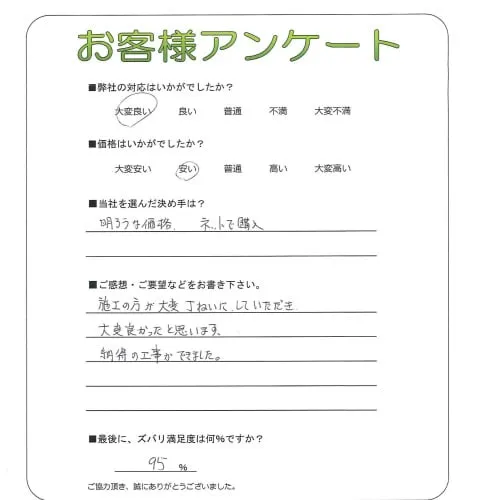 お客様アンケート
■弊社の対応はいかがでしたか？
大変良い 良い 普通 不満 大変不満
■価格はいかがでしたか？
大変安い 安い 普通 高い 大変高い
■当社を選んだ決め手は？
明ろうな価格、 ネットで購入
■ご感想・ご要望などをお書き下さい。
施工の方が大変丁ねいに、していただき
大変良かったと思います。
納得の工事ができました。
■最後に、ズバリ満足度は何%ですか？
95 %
ご協力頂き、誠にありがとうございました。